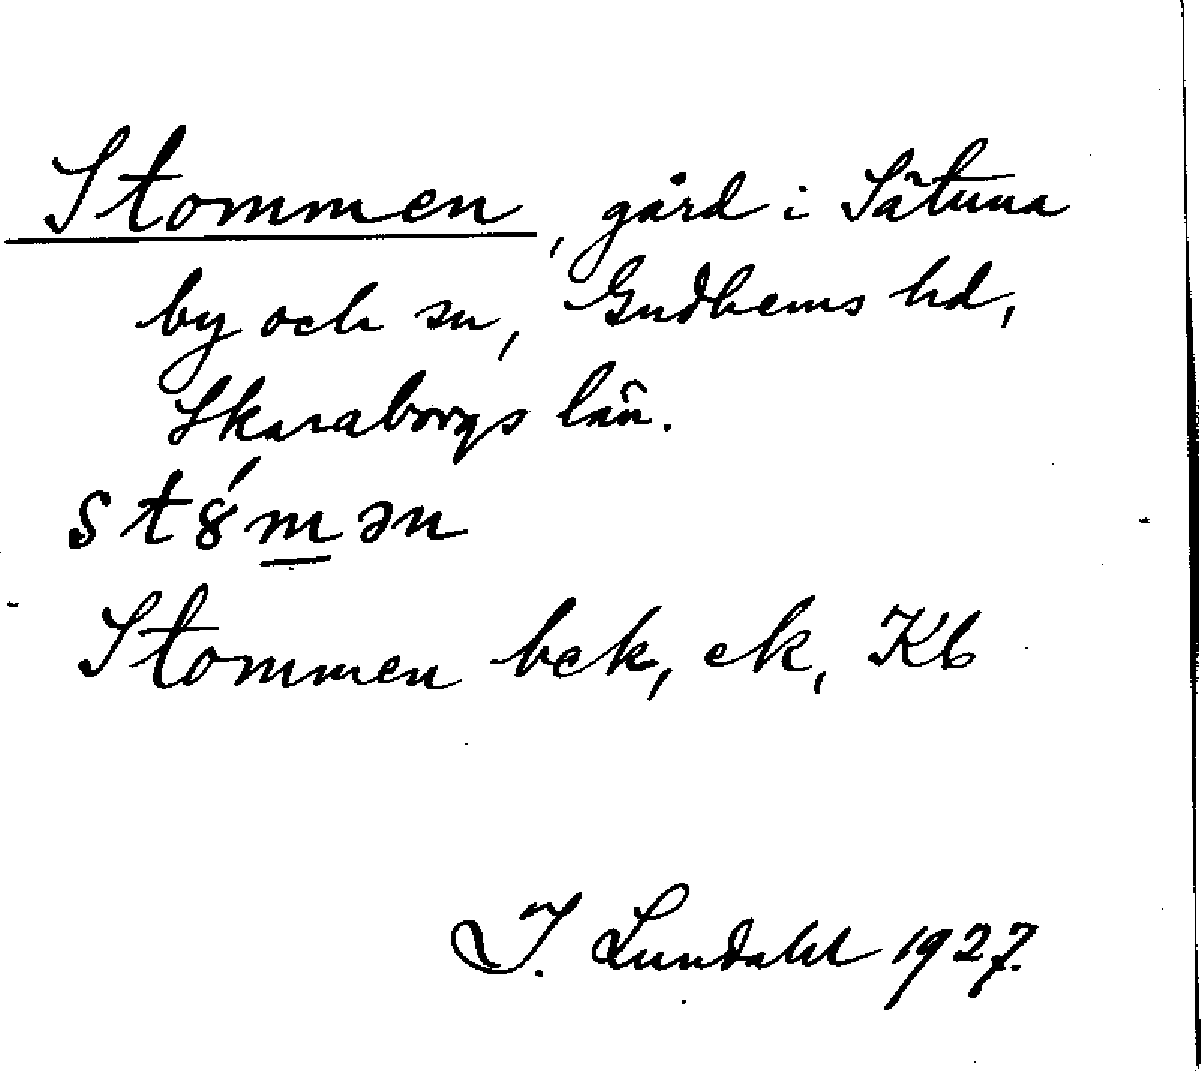 Stommen, gård i Sätuna
by och sn, Gudhems hd,
Skaraborgs län.
st8́mən
Stommen bck, ek, Kb
I. Lundahl 1927.